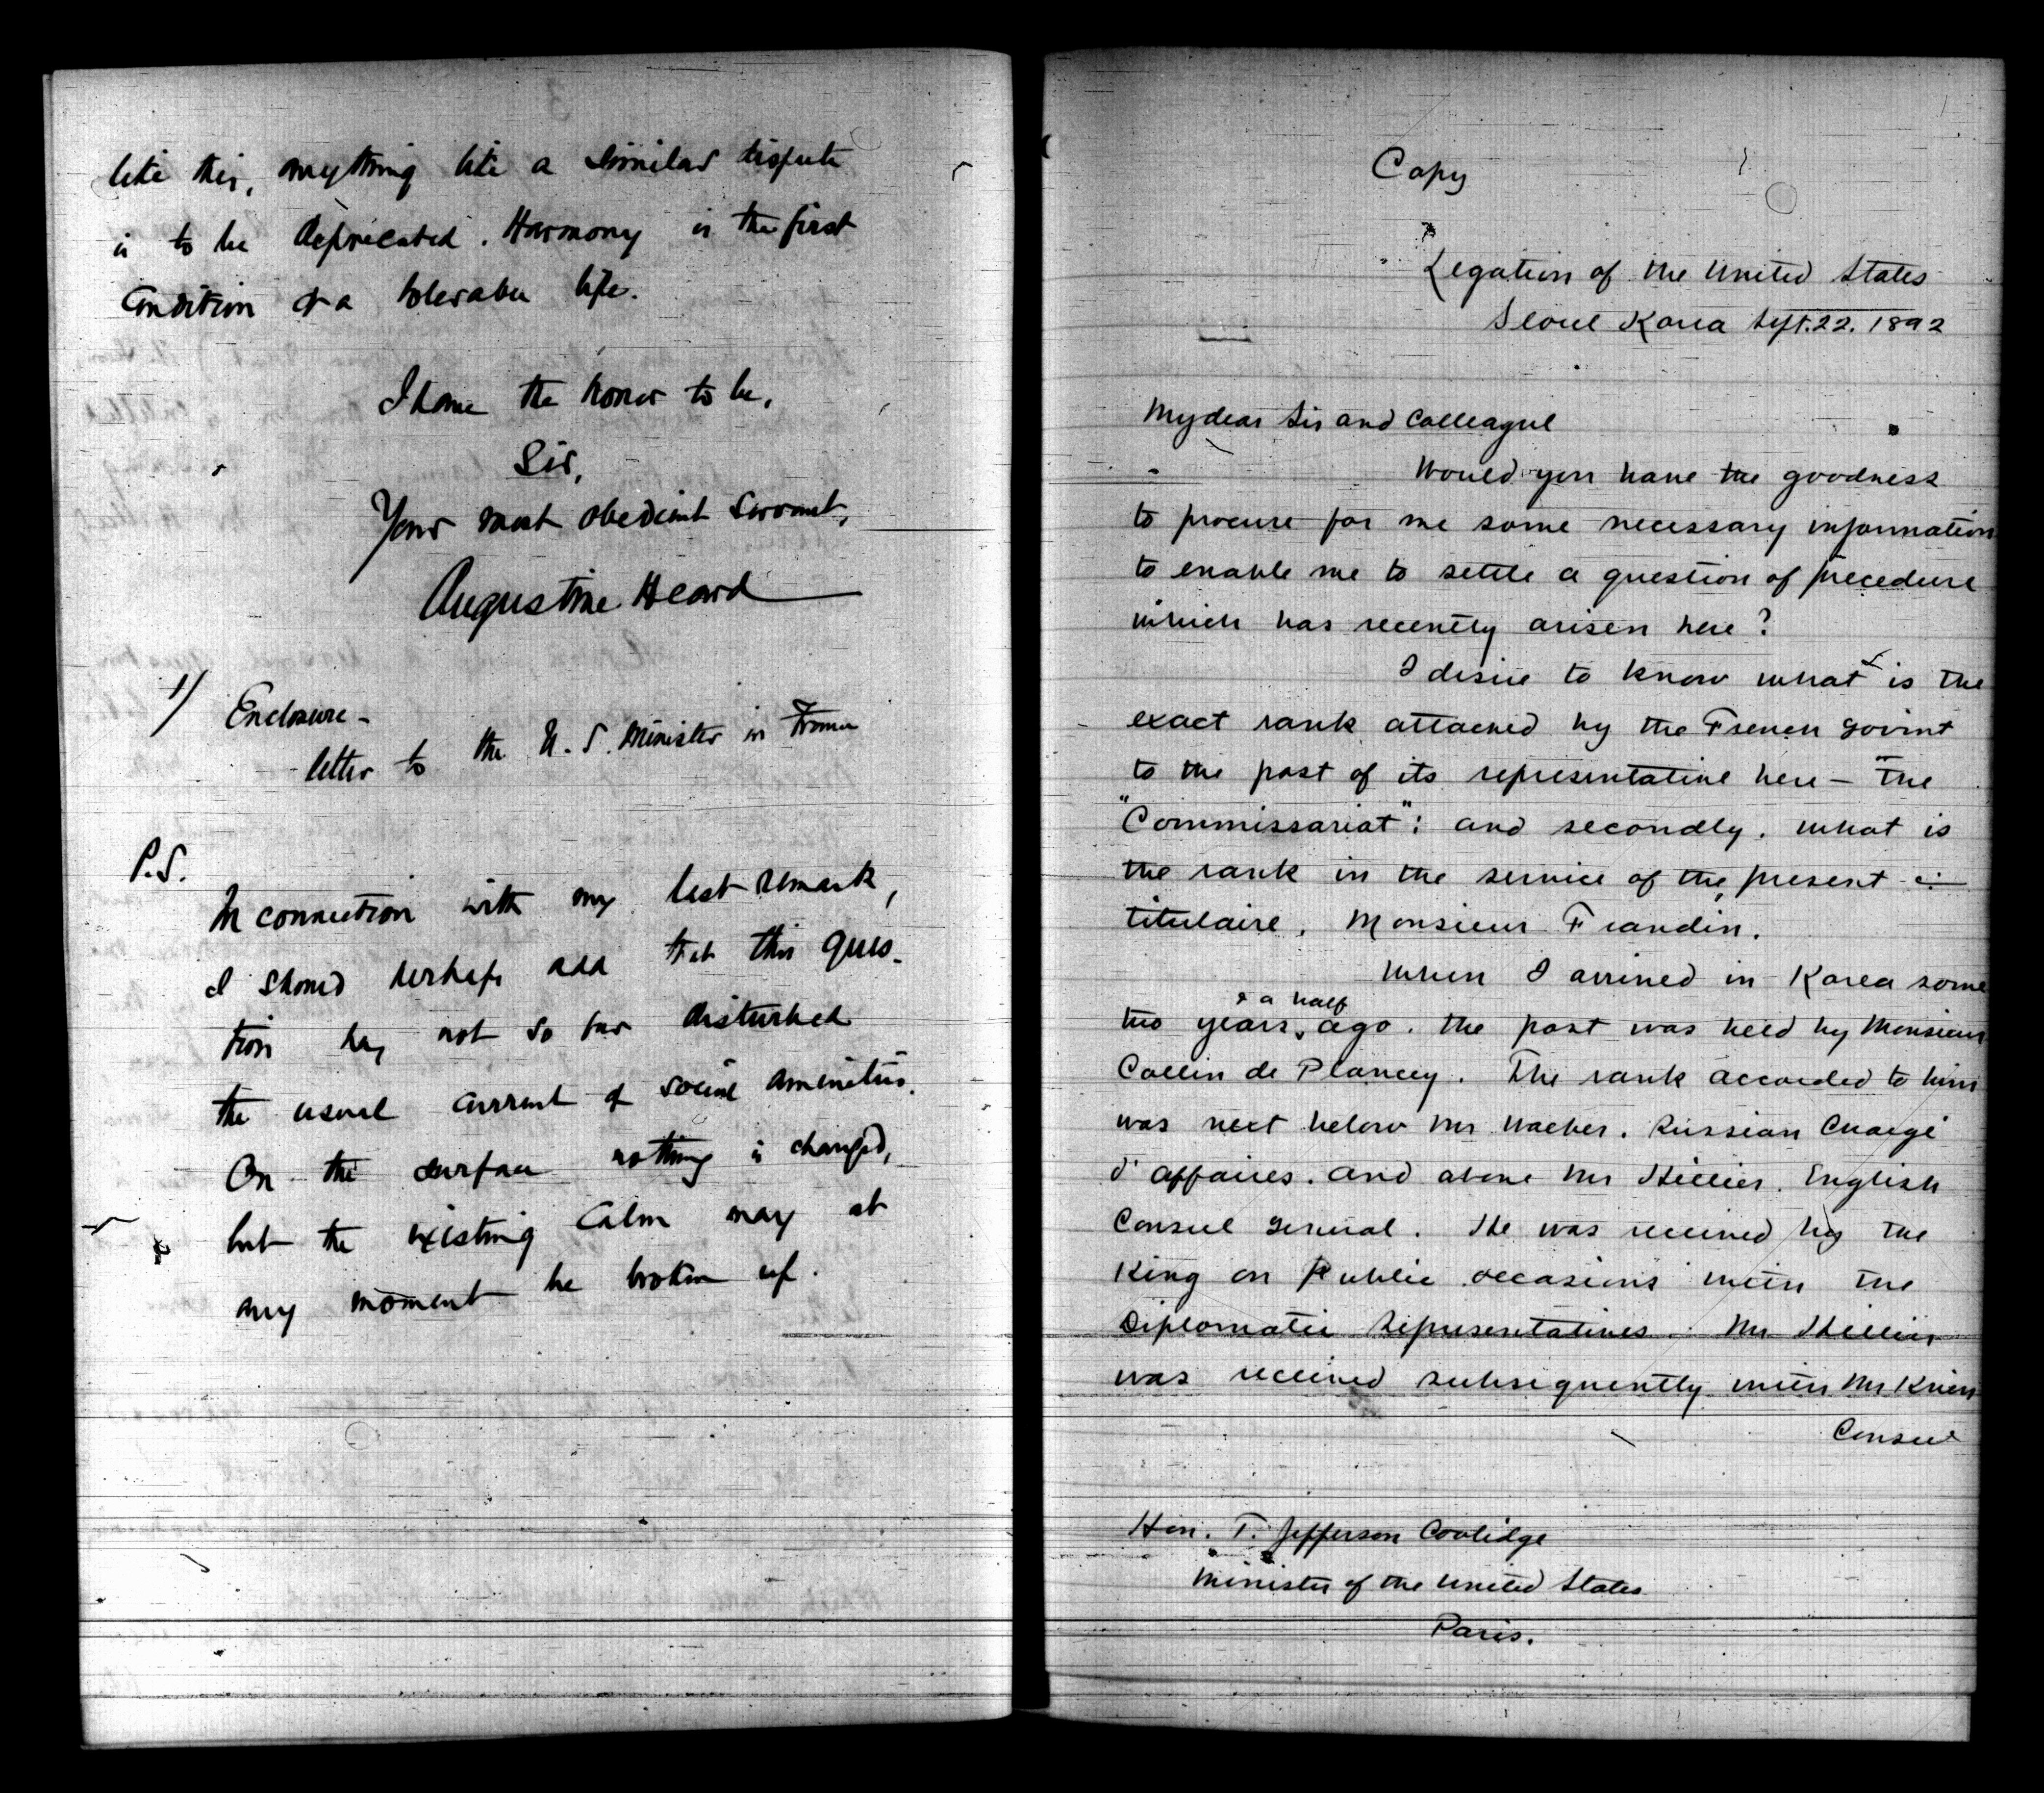 like this, anything like a similar dispute
is to be deprecated. Harmony is the first
Condition of a tolerable life.
I have the honor to be,
Sir,
Your most obedient Servant,
Augustine Heard
1/ Enclosure -
letter to the U. S. Minister in France
P.S.
In connection with my last remark,
I should perhaps add that this ques-
tion has not so far disturbed
the usual current of social amenities.
On the surface nothing is changed,
but the existing calm may at
any moment be broken up.
Copy
Legation of the United States
Seoul Korea Sept. 22. 1892
My dear Sir and Colleague
Would you have the goodness
to procure for me some necessary information
to enable me to settle a question of precedence
which has recently arisen here?
I desire to know what is the
exact rank attached by the French Govmt
to the post of its representative here – The
"Commissariat": and secondly. what is
the rank in the service of the present
titulaire, Monsieur Frandin.
When I arrived in Korea some
two years & a half ago. the post was held by Monsieur
Collin de Plancey. The rank accorded to him
was next below Mr Waeber. Russian Chargé
d'affaires. and above Mr Hillier. English
Consul General. He was received by the
King on Public occasions with the
Diplomatic Representatives. Mr Hillier
was received subsequently with Mr Krien
Consul
Hon. T. Jefferson Coolidge
Minister of the United States
Paris.